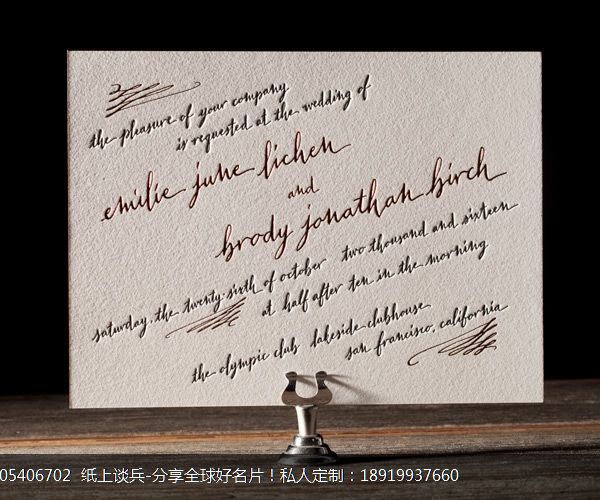 the pleasure of your company
is requested at the wedding of
emilie june lichen
and
brody jonathan birch
saturday, the twenty-sixth of october two thousand and sixteen
at half after ten in the morning
the olympic club lakeside clubhouse
san francisco, california
05406702 纸上谈兵-分享全球好名片！私人定制：18919937660